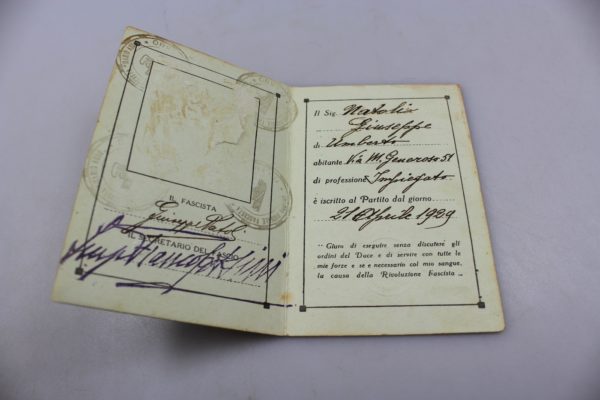 IL FASCISTA
Giuseppe Natoli
IL SEGRETARIO DEL FASCIO
Il Sig. Natoli
Giuseppe
di Umberto
abitante Via M. Generoso 51
di professione Impiegato
è iscritto al Partito dal giorno
21 Aprile 1929
"Giuro di eseguire senza discutere gli
ordini del Duce e di servire con tutte le
mie forze e se è necessario col mio sangue,
la causa della Rivoluzione Fascista„